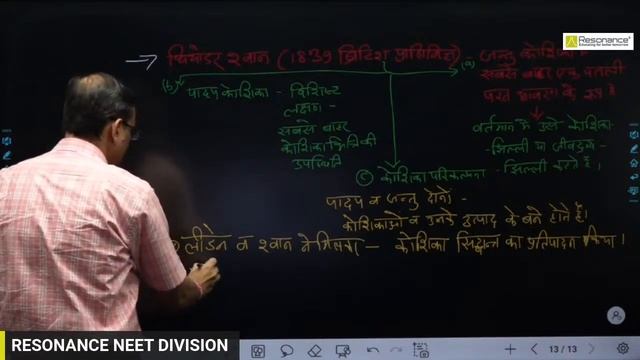 Resonance®
Educating for better tomorrow
→ थियोडर श्वान (1839 ब्रिटिश प्राणिविद) - (a) जन्तु कोशिका
सबसे बाहर एक पतली
परत
(b) पादप कोशिका - विशिष्ट
लक्षण -
सबसे बाहर
कोशिका भित्ति की
उपस्थिति
वर्तमान में उसे कोशिका
- झिल्ली या जीवद्रव्य
- झिल्ली कहते हैं।
(c) कोशिका परिकल्पना
पादप व जन्तु दोनों -
कोशिकाओं व उनके उत्पाद के बने होते हैं।
श्लीडेन व श्वान ने मिलकर — कोशिका सिद्धान्त का प्रतिपादन किया।
13 / 13
RESONANCE NEET DIVISION